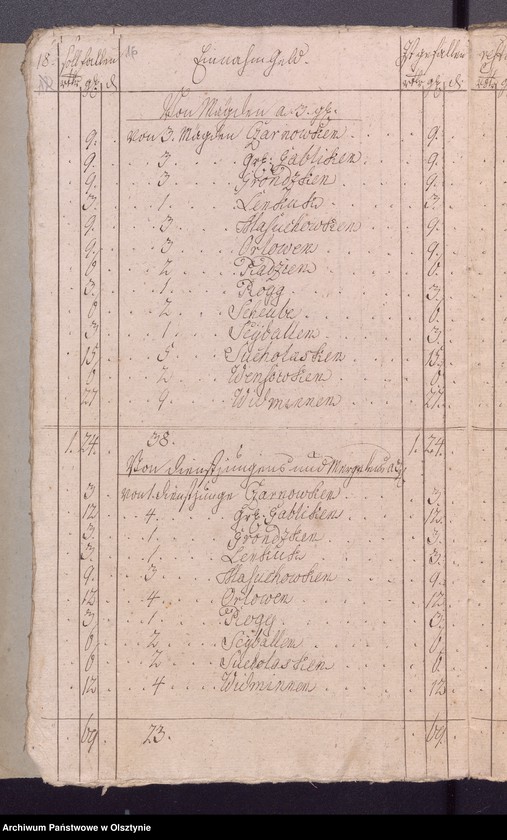 18. Soll fallen Einnahm Geld. Ist gefallen
rtr. gr. d. rtr. gr. d.
Von Mägden a. 3. gr.
9. von 3. Mägden Czarnowken 9.
9. 3 grz: Gablicken 9.
9. 3 Grondzken 9.
3. 1. Lenkuk 3.
9. 3 Masuchowken 9.
9. 3 Orlowen 9.
6 2 Radzien 6.
3. 1 Rogg 3.
6 2 Scheube 6.
3 1 Seyballen 3.
15 5 Sucholasken 15.
6 2 Wensowken 6.
27 9 Widminnen 27.
1. 24. 38. 1. 24.
Von Dienstjungens und
3 von 1. Dienstjunge Czarnowken 3.
12 4 grz: Gablicken 12
3. 1. Grondzken 3.
3. 1 Lenkuk 3.
9. 3 Masuchowken 9.
12 4 Orlowen 12
3 1 Rogg 3
6 2 Seyballen 6
6 2 Sucholasken 6
12 4 Widminnen 12
69 23. 69.
Archiwum Państwowe w Olsztynie